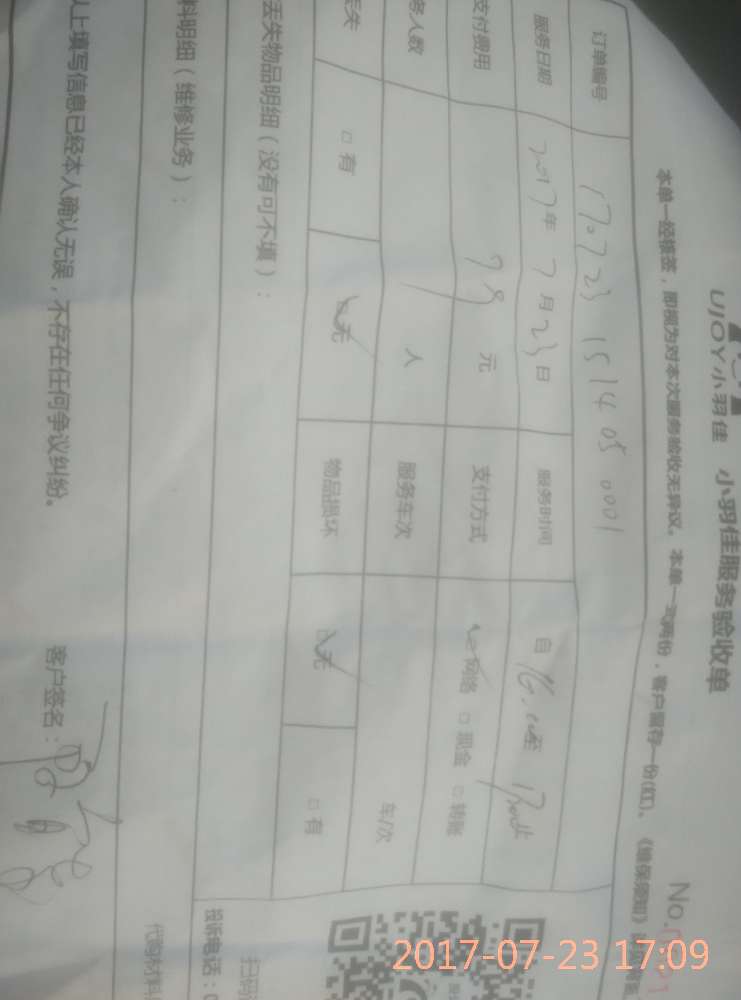 UJOY小羽佳 小羽佳服务验收单
No.
本单一经核签，即视为对本次服务验收无异议。本单一式两份，客户留存一份(红)、《维保须知》
订单编号 170723 151405 0001
服务日期 2017年7月23日 服务时间 自16:00至
支付费用 78元 支付方式 网络 □现金 □转账
务人数 人 服务车次 车/次
丢失 □有 无 物品损坏 无 □有
丢失物品明细（没有可不填）：
料明细（维修业务）：
投诉电话：0
以上填写信息已经本人确认无误，不存在任何争议纠纷。 客户签名：
2017-07-23 17:09